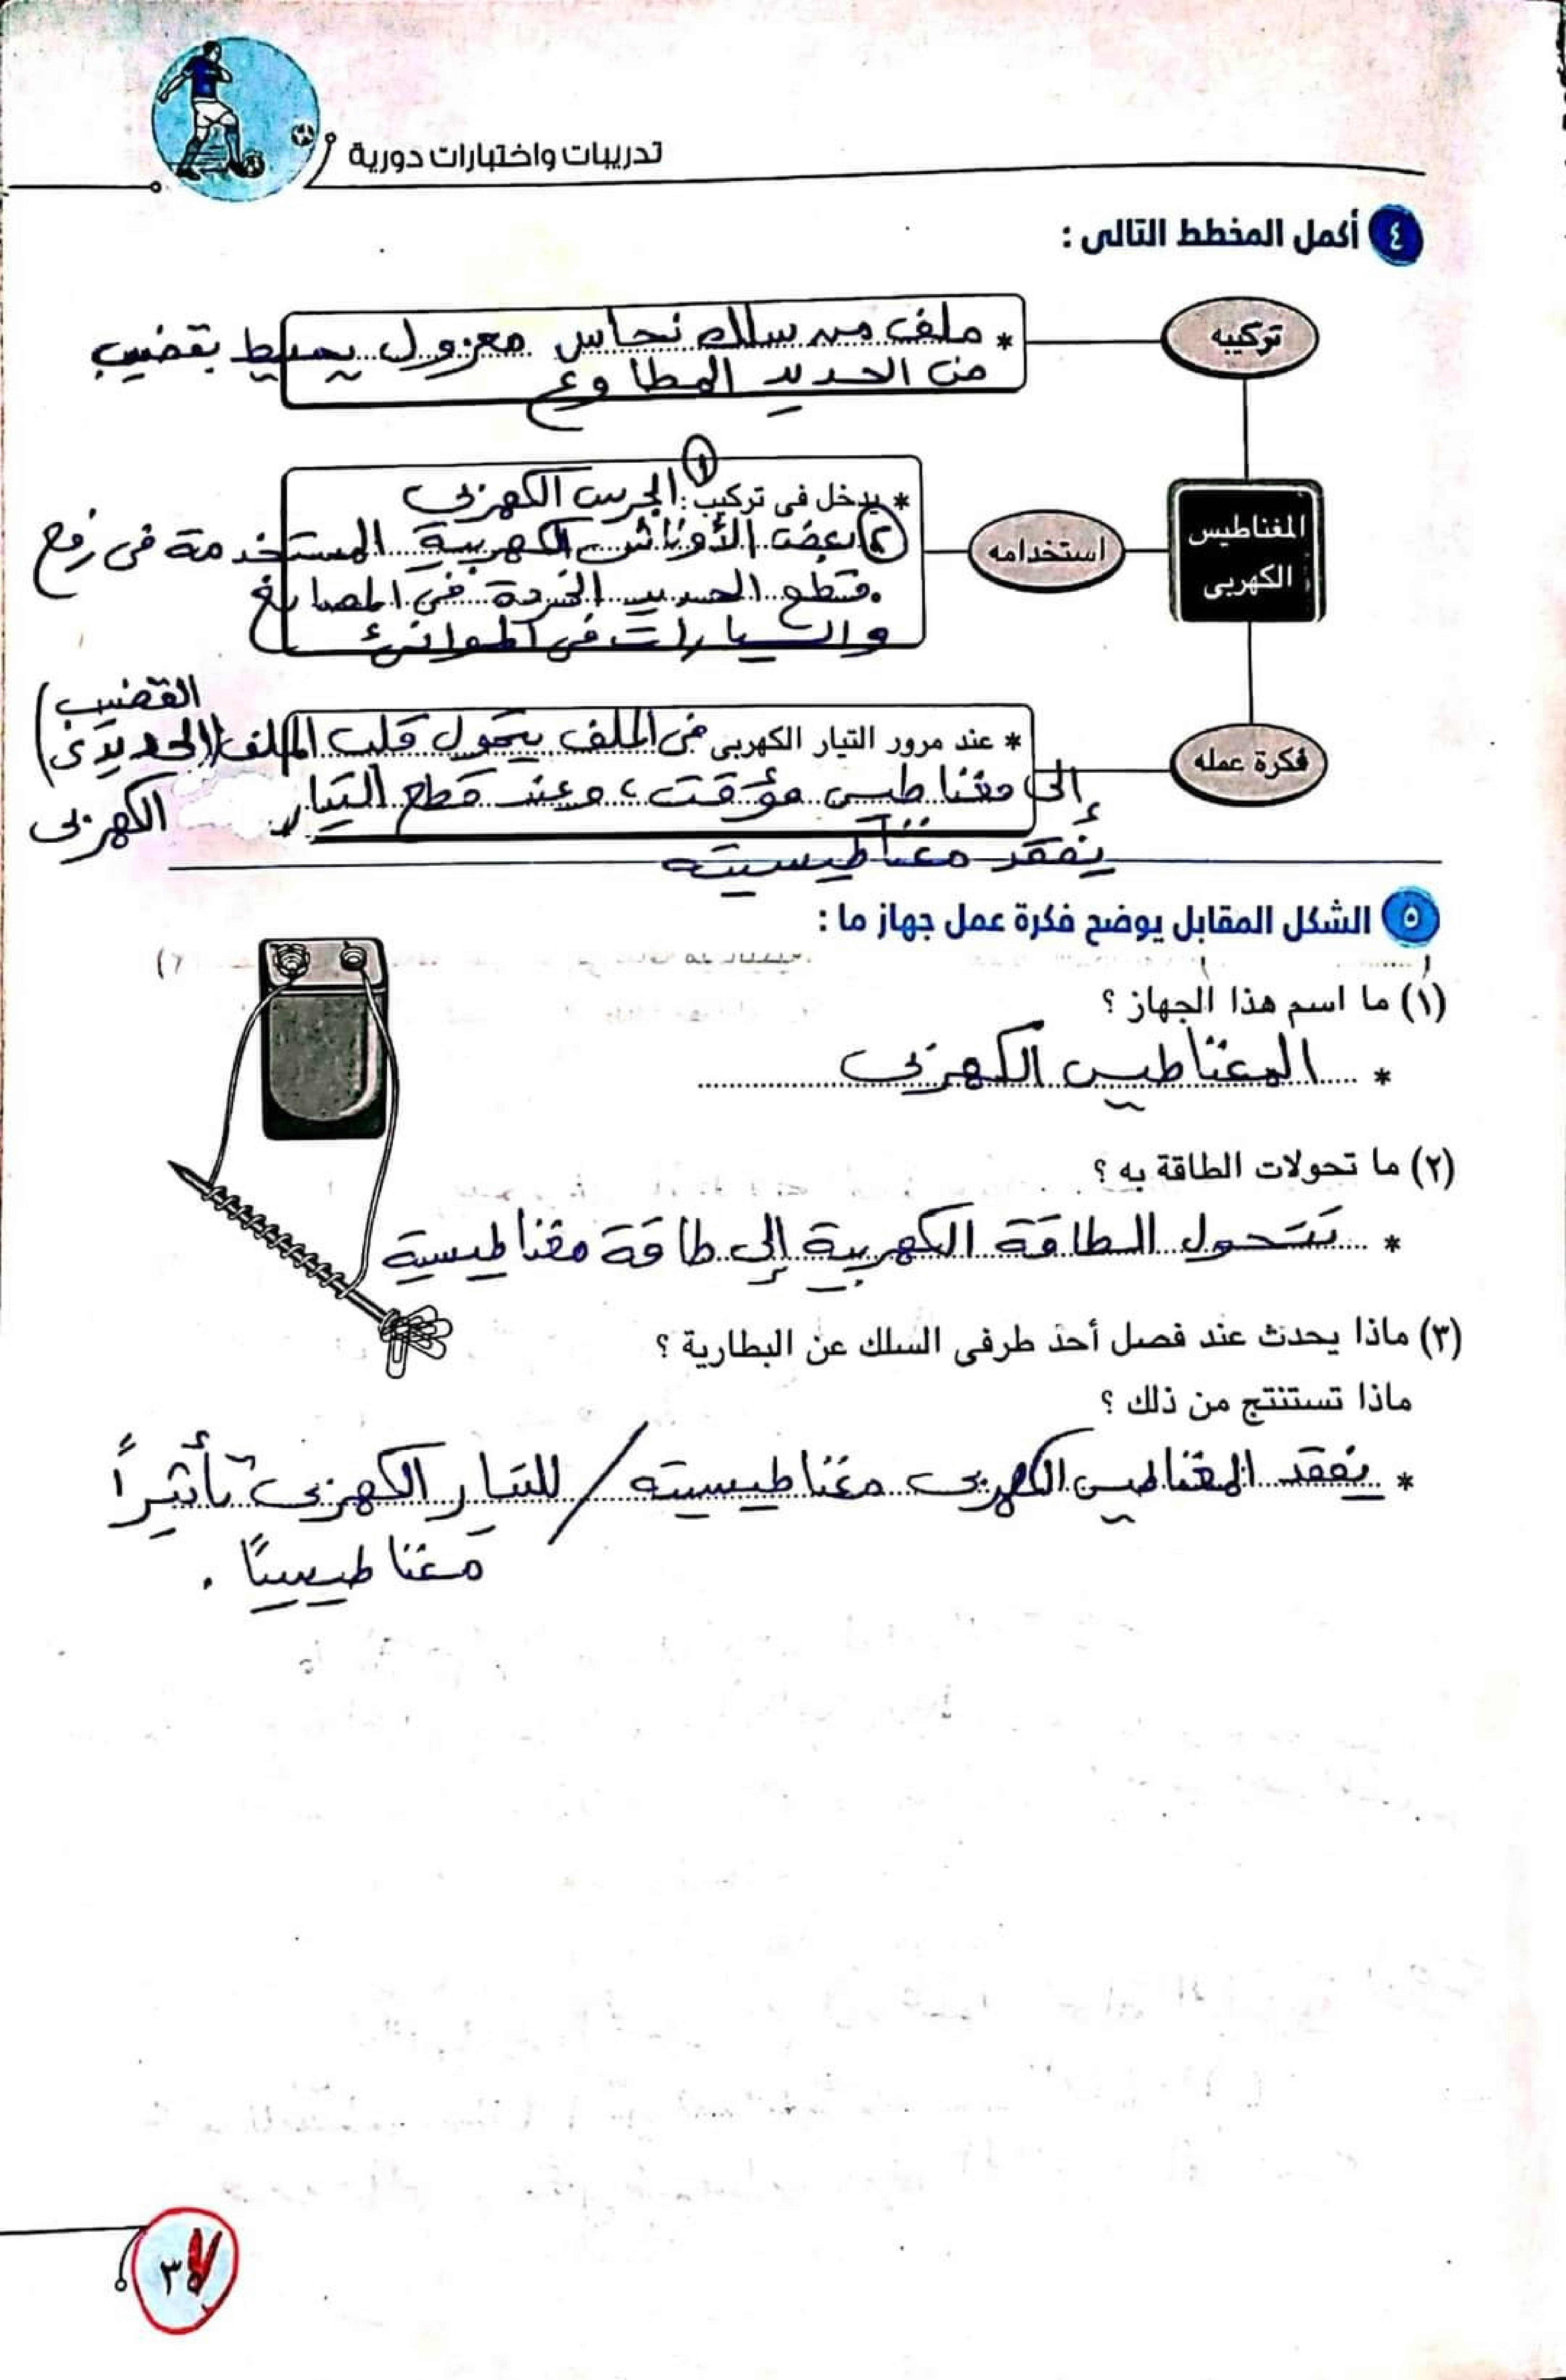 تدريبات واختبارات دورية
٤ أكمل المخطط التالى :
تركيبه
* ملف من سلك نحاس معزول يحيط بقضيب
من الحديد المطاوع
المغناطيس الكهربى
استخدامه
* يدخل فى تركيب : ① الجرس الكهربى
② بعض الأوناش الكهربية المستخدمة فى رفع
قطع الحديد الخردة فى المصانع
والسيارات فى الموانئ
فكرة عمله
* عند مرور التيار الكهربى فى الملف يتحول قلب الملف (القضيب الحديدى)
إلى مغناطيس مؤقت، وعند قطع التيار الكهربى
يفقد مغناطيسيته
٥ الشكل المقابل يوضح فكرة عمل جهاز ما :
(١) ما اسم هذا الجهاز ؟
* المغناطيس الكهربى
(٢) ما تحولات الطاقة به ؟
* تتحول الطاقة الكهربية إلى طاقة مغناطيسية
(٣) ماذا يحدث عند فصل أحد طرفى السلك عن البطارية ؟
ماذا تستنتج من ذلك ؟
* يفقد المغناطيس الكهربى مغناطيسيته / للتيار الكهربى تأثيراً
مغناطيسياً .